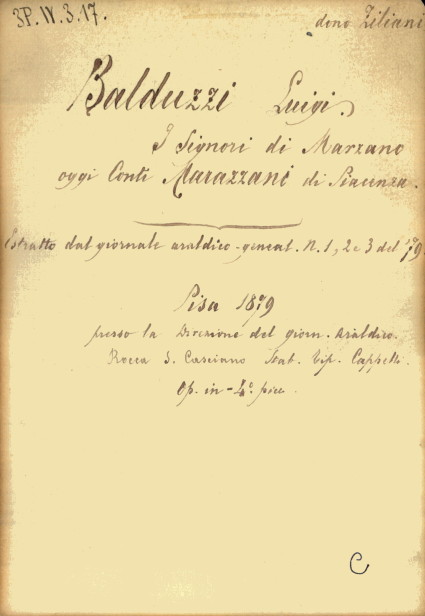 3P. IV. 3. 17.
dono Ziliani
Balduzzi Luigi.
I Signori di Marzano
oggi Conti Marazzani di Piacenza.
Estratto dal giornale araldico-geneal. N. 1, 2 e 3 del 1879
Pisa 1879
presso la Direzione del giorn. Araldico.
Rocca S. Casciano Stab. Tip. Cappelli.
Op. in-4° picc.
C